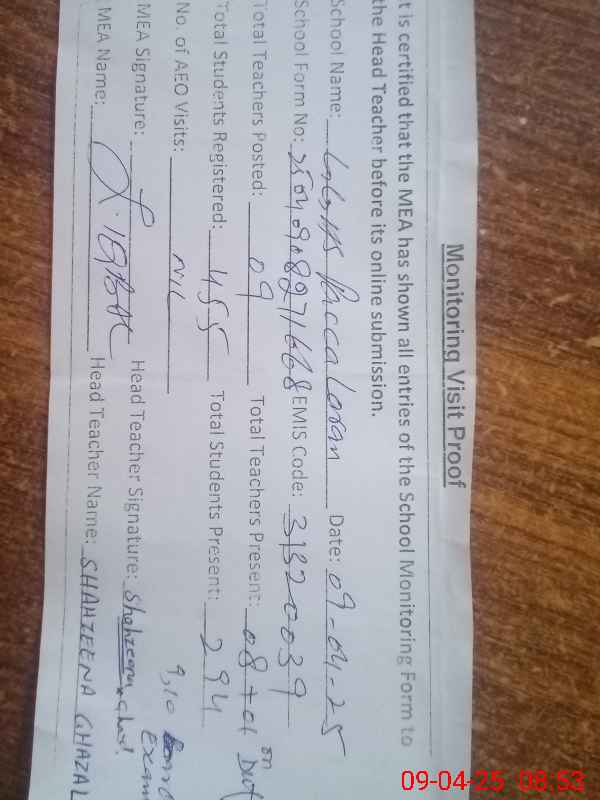 Monitoring Visit Proof
t is certified that the MEA has shown all entries of the School Monitoring Form to
the Head Teacher before its online submission.
School Name: Pacca Date: 09-04-25
School Form No: EMIS Code: 31320039
Total Teachers Posted: 09 Total Teachers Present: 08+01 on Dut
Total Students Registered: 455 Total Students Present: 294
No. of AEO Visits: NIL 9,10 Exam
MEA Signature: Head Teacher Signature: Shahzeena
MEA Name: IQBAL Head Teacher Name: SHAHZEENA GHAZAL
09-04-25 08:53